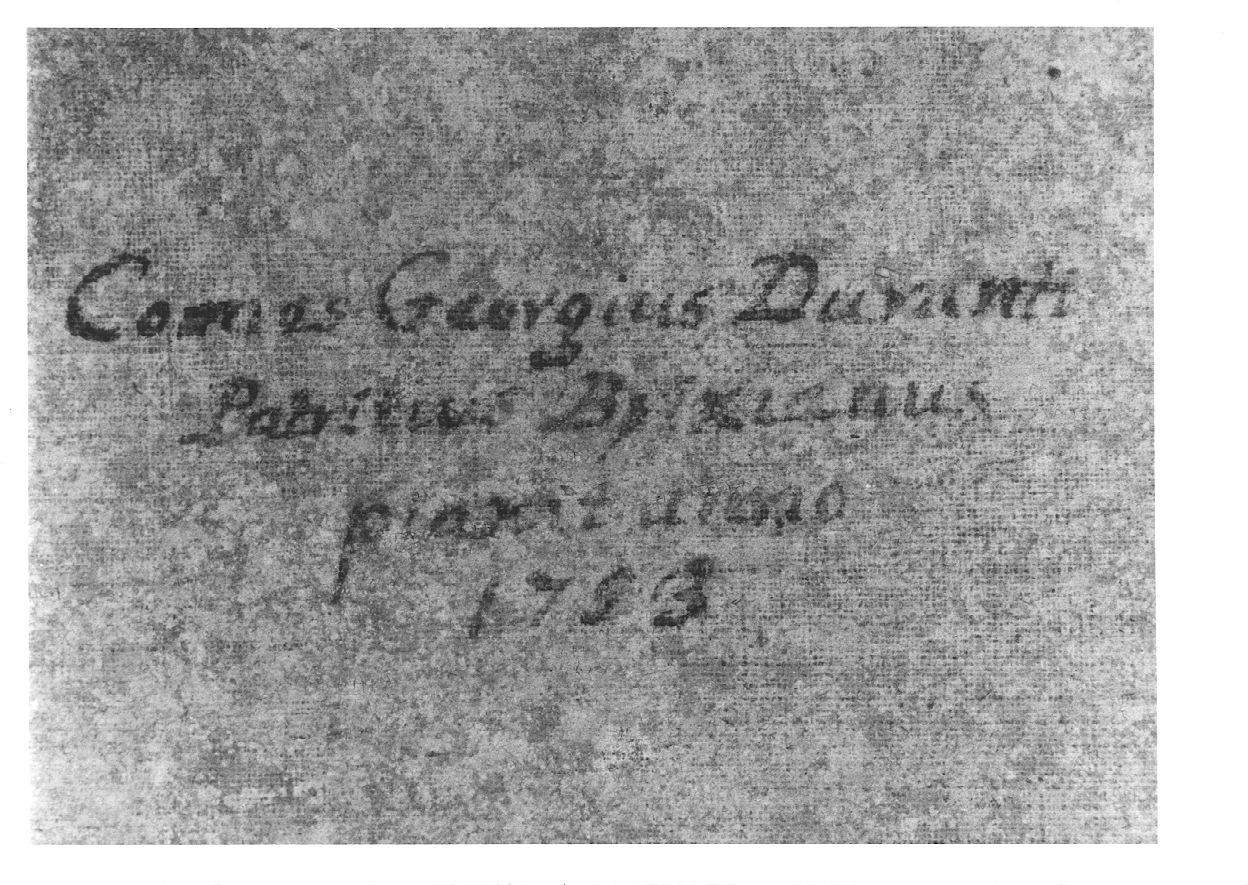 Comes Georgius Duranti
Patritius Brixianus
pinxit anno
1753